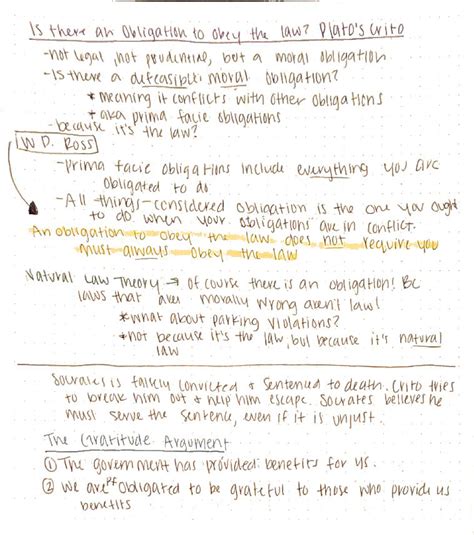 Is there an Obligation to obey the law? Plato's Crito
-not legal, not prudential, but a moral obligation
-Is there a defeasible moral obligation?
* meaning it conflicts with other obligations
* aka prima facie obligations
-because it's the law?
W.D. Ross
-Prima facie obligations include everything you are
obligated to do
-All-things-considered obligation is the one you ought
to do when your obligations are in conflict.
An obligation to obey the law does not require you
must always obey the law
Natural Law Theory → of course there is an obligation! Bc
laws that are morally wrong aren't law!
*what about parking violations?
*not because it's the law, but because it's natural
law
Socrates is falsely convicted & sentenced to death. Crito tries
to break him out & help him escape. Socrates believes he
must serve the sentence, even if it is unjust.
The Gratitude Argument
① The government has provided benefits for us.
② We are PF obligated to be grateful to those who provide us
benefits